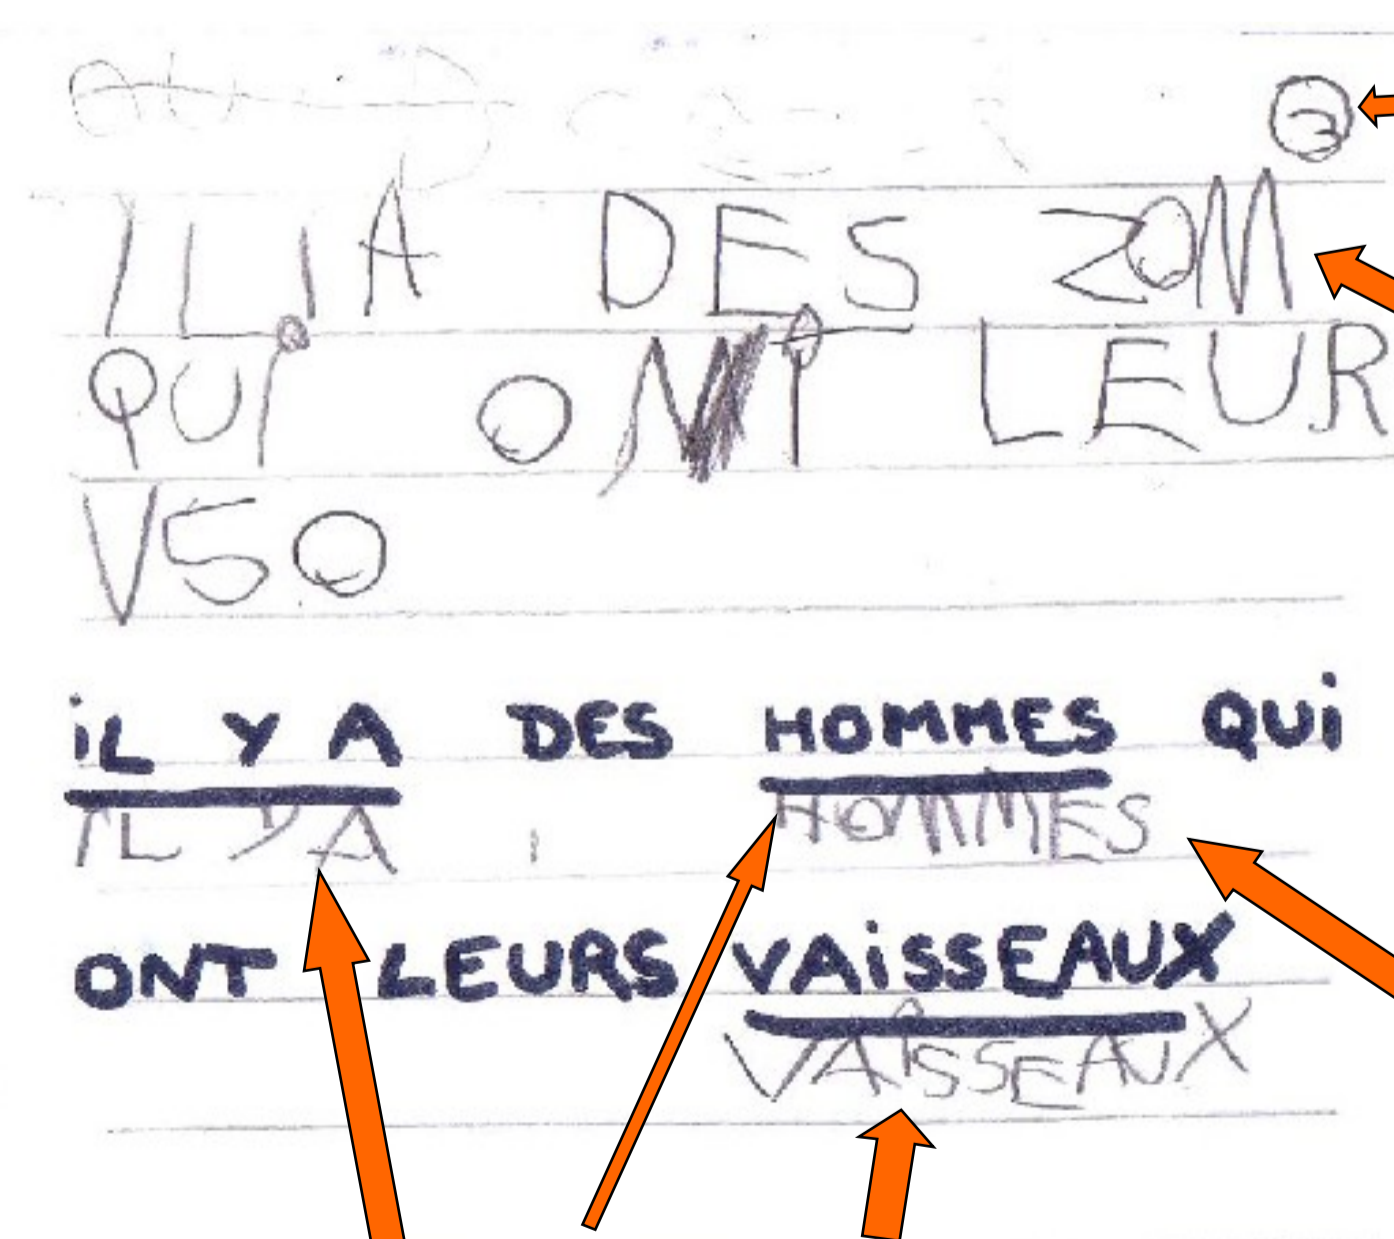 ILIA DES ZOM
QUI ONT LEUR
VSO
iL Y A DES HOMMES QUi
IL Y A HOMMES
ONT LEURS VAiSSEAUX
VAISSEAUX